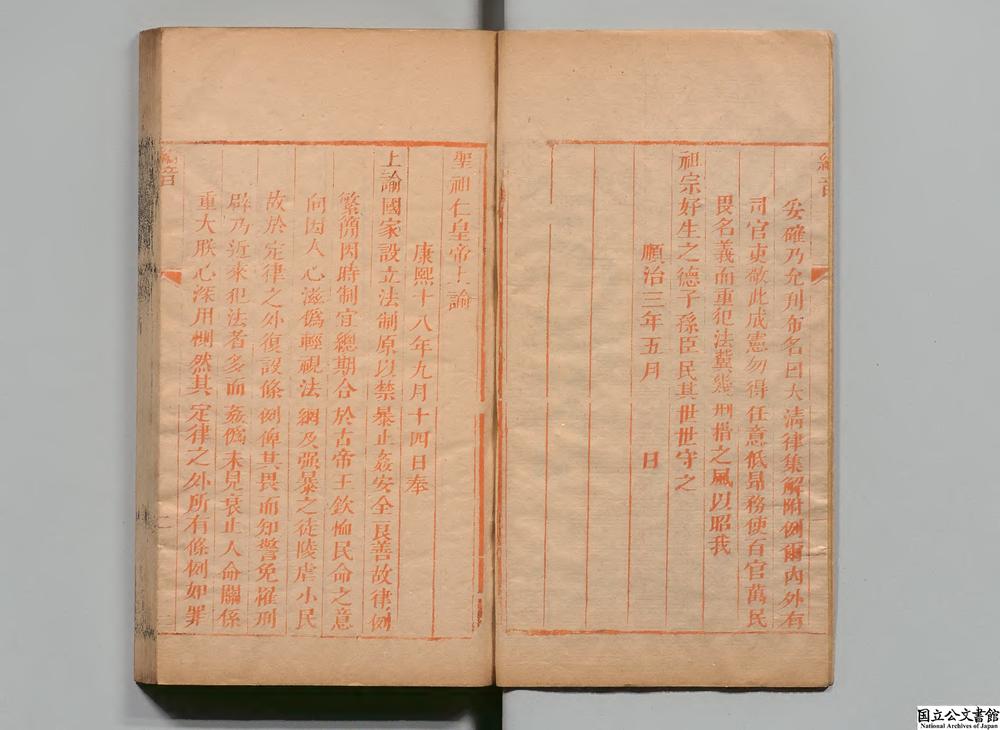 妥確乃允刋布名曰大清律集解附例爾內外有
司官吏敬此成憲勿得任意低昻務使百官萬民
畏名義而重犯法冀幾刑措之風以昭我
祖宗好生之德子孫臣民其世世守之
順治三年五月　　日
聖祖仁皇帝上諭
康熙十八年九月十四日奉
上諭國家設立法制原以禁暴止姦安全良善故律例
繁簡因時制宜總期合於古帝王欽恤民命之意
向因人心滋僞輕視法綱及强暴之徒陵虐小民
故於定律之外復設條例俾其畏而知警免罹刑
辟乃近來犯法者多而姦僞未見衰止人命關係
重大朕心深用惻然其定律之外所有條例如罪
二
国立公文書館
National Archives of Japan